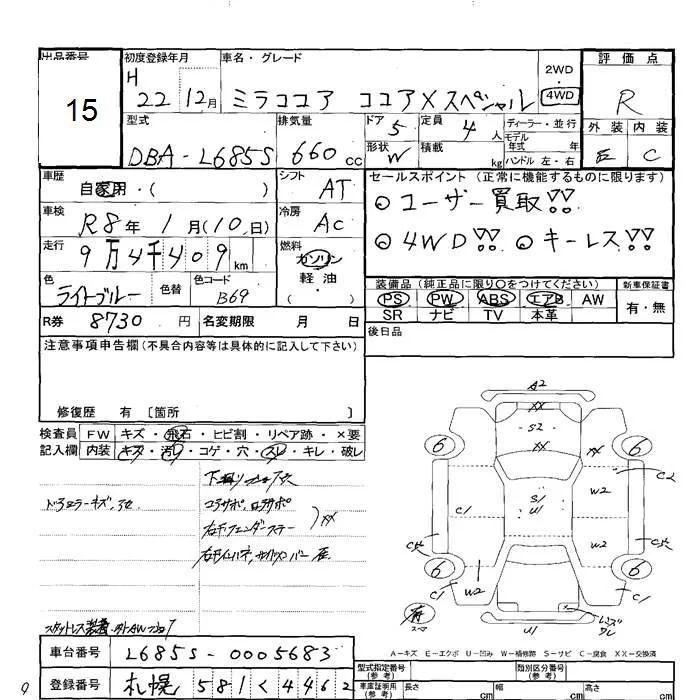 出品番号 15
初度登録年月 H 22 12月
車名・グレード ミラココア ココアXスペシャル
2WD ・ 4WD
評価点 R
外装 内装 C
型式 DBA-L685S
排気量 660 cc
ドア 5 定員 4 人
形状 W 積載 kg
ディーラー・並行
モデル年式 年
ハンドル 左・右
車歴 自家用・( )
シフト AT
車検 R8年 1月(10日)
冷房 AC
走行 9万4千409 km
燃料 ガソリン 軽油 ( )
色 ライトブルー 色替 色コード B69
R券 8730 円 名変期限 月 日
セールスポイント(正常に機能するものに限ります)
◎ユーザー買取!!
◎4WD!! ◎キーレス!!
装備品(純正品に限り○をつけてください) 新車保証書
PS PW ABS エアB AW 有・無
SR ナビ TV 本革
後日品
注意事項申告欄(不具合内容等は具体的に記入して下さい)
修復歴 有 〔箇所 〕
検査員 FW キズ・飛石・ヒビ割・リペア跡・×要
記入欄 内装 キズ・汚レ・コゲ・穴・スレ・キレ・破レ
コアサポ、ロアサポ
XX
A2
XX
S2
XX
XX
6 6
C2
W2
S/
U1
C1
W2
6 6
C1 W2 C1
U1
A-キズ E-エクボ U-凹み W-補修跡 S-サビ C-腐食 XX-交換済
車台番号 L685S-0005683
登録番号 札幌 581 く 4462
型式指定番号(参考) 類別区分番号(参考)
車庫証明用(参考) 長さ cm 幅 cm 高さ cm